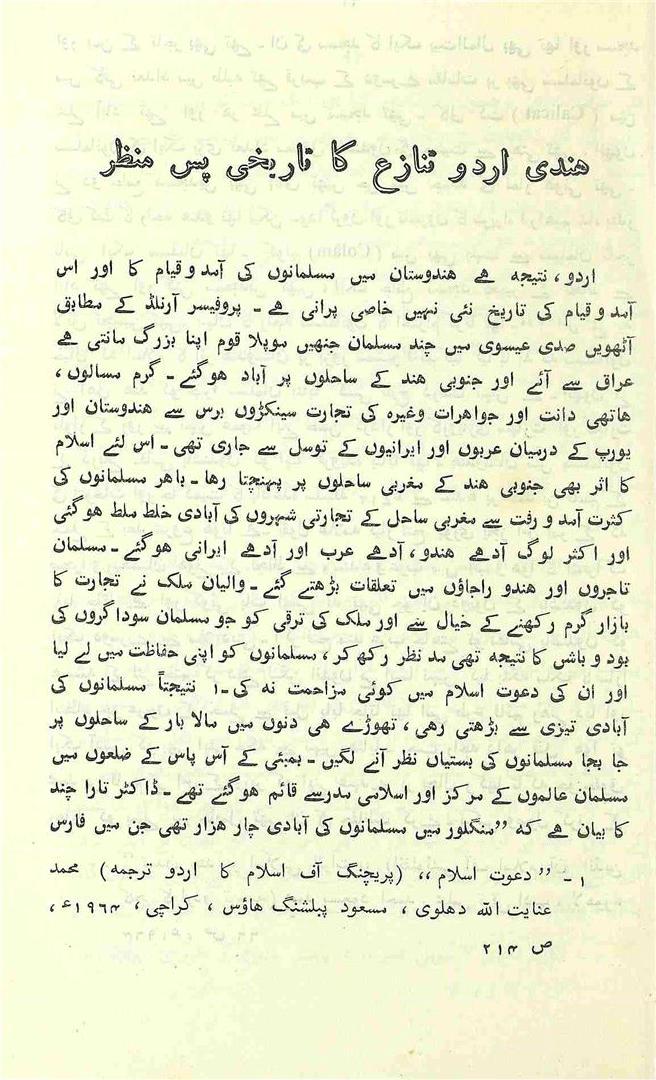 ھندی اردو تنازع کا تاریخی پس منظر
اردو، نتیجہ ھے ھندوستان میں مسلمانوں کی آمد و قیام کا اور اس
آمد و قیام کی تاریخ نئی نہیں خاصی پرانی ھے۔ پروفیسر آرنلڈ کے مطابق
آٹھویں صدی عیسوی میں چند مسلمان جنھیں موپلا قوم اپنا بزرگ مانتی ھے
عراق سے آئے اور جنوبی ھند کے ساحلوں پر آباد ھوگئے۔ گرم مسالوں،
ھاتھی دانت اور جواھرات وغیرہ کی تجارت سینکڑوں برس سے ھندوستان اور
یورپ کے درمیان عربوں اور ایرانیوں کے توسل سے جاری تھی۔ اس لئے اسلام
کا اثر بھی جنوبی ھند کے مغربی ساحلوں پر پہنچتا رھا۔ باھر مسلمانوں کی
کثرت آمد و رفت سے مغربی ساحل کے تجارتی شہروں کی آبادی خلط ملط ھوگئی
اور اکثر لوگ آدھے ھندو، آدھے عرب اور آدھے ایرانی ھوگئے۔ مسلمان
تاجروں اور ھندو راجاؤں میں تعلقات بڑھتے گئے۔ والیان ملک نے تجارت کا
بازار گرم رکھنے کے خیال سے اور ملک کی ترقی کو جو مسلمان سوداگروں کی
بود و باش کا نتیجہ تھی مد نظر رکھ کر، مسلمانوں کو اپنی حفاظت میں لے لیا
اور ان کی دعوت اسلام میں کوئی مزاحمت نہ کی۔۱ نتیجتاً مسلمانوں کی
آبادی تیزی سے بڑھتی رھی، تھوڑے ھی دنوں میں مالا بار کے ساحلوں پر
جا بجا مسلمانوں کی بستیاں نظر آنے لگیں۔ بمبئی کے آس پاس کے ضلعوں میں
مسلمان عالموں کے مرکز اور اسلامی مدرسے قائم ھوگئے تھے۔ ڈاکٹر تارا چند
کا بیان ھے کہ ”منگلور میں مسلمانوں کی آبادی چار ھزار تھی جن میں فارس
۱ - ”دعوت اسلام“ (پریچنگ آف اسلام کا اردو ترجمہ) محمد
عنایت اللہ دھلوی، مسعود پبلشنگ ھاؤس، کراچی، ۱۹۶۴ء،
ص ۲۱۴